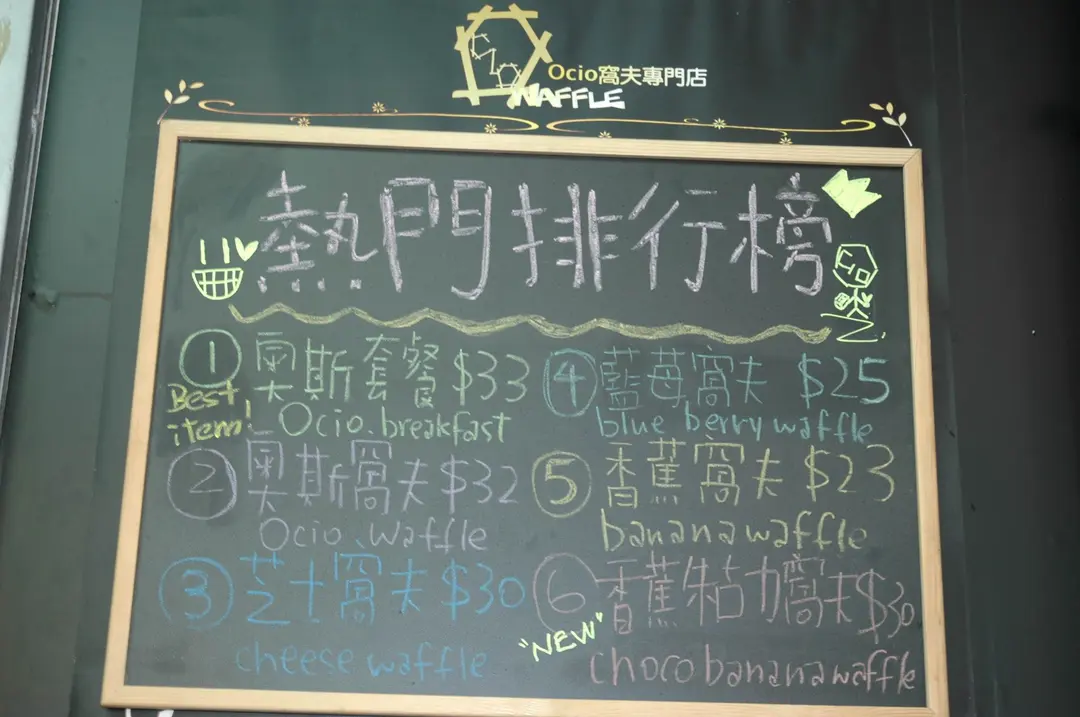 Ocio
Ocio窩夫專門店
WAFFLE
熱門排行榜
① 奧斯套餐 $33
Best item!
Ocio breakfast
② 奧斯窩夫 $32
Ocio waffle
③ 芝士窩夫 $30
cheese waffle
④ 藍莓窩夫 $25
blue berry waffle
⑤ 香蕉窩夫 $23
banana waffle
⑥ 香蕉朱古力窩夫 $30
"NEW"
choco banana waffle